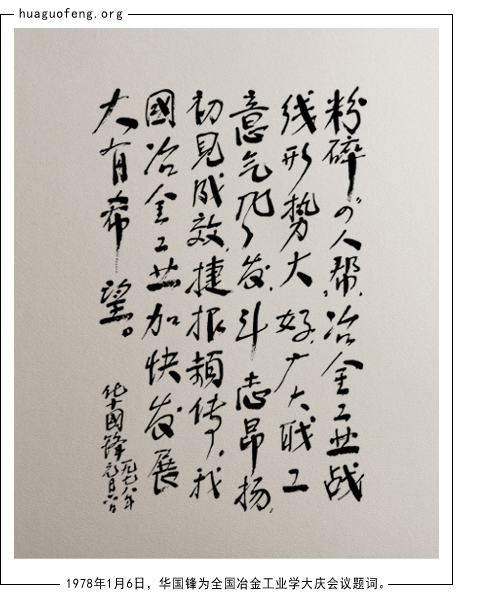 huaguofeng.org
粉碎四人帮,冶金工业战
线形势大好,广大职工
意气风发,斗志昂扬,
初见成效,捷报频传。我
國冶金工业加快发展
大有希望。
华國锋
一九七八年
元月六日
1978年1月6日，华国锋为全国冶金工业学大庆会议题词。